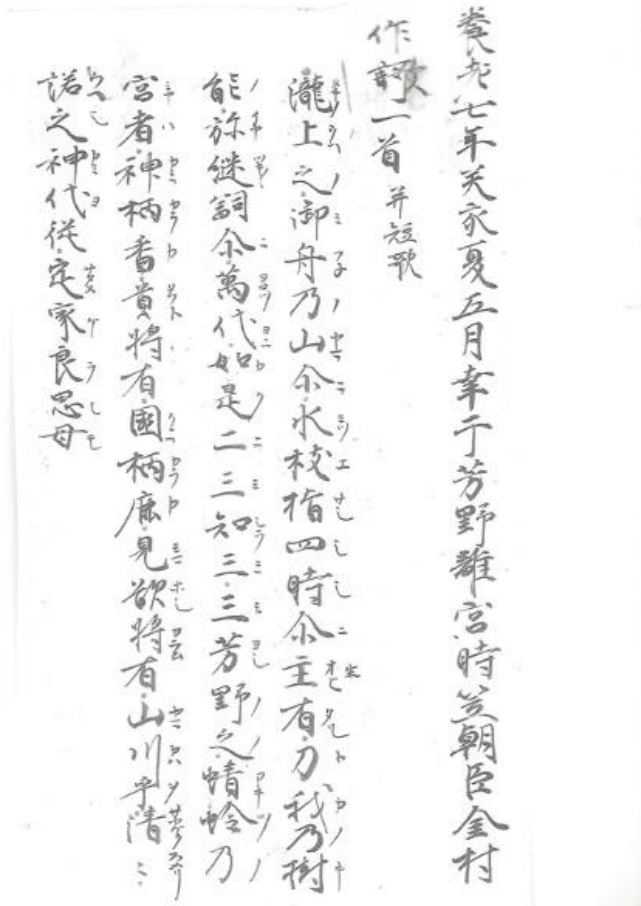 養老七年癸亥夏五月幸于芳野離宮時笠朝臣金村
作歌一首并短歌
瀧上之御舟乃山尒水枝指四時尒主有刀我乃樹
能弥継嗣尒萬代如是二三知三三芳野之蜻蛉乃
宮者神柄香貴将有國柄鹿見欲将有山川乎清ミ
諾之神代従定家良思母